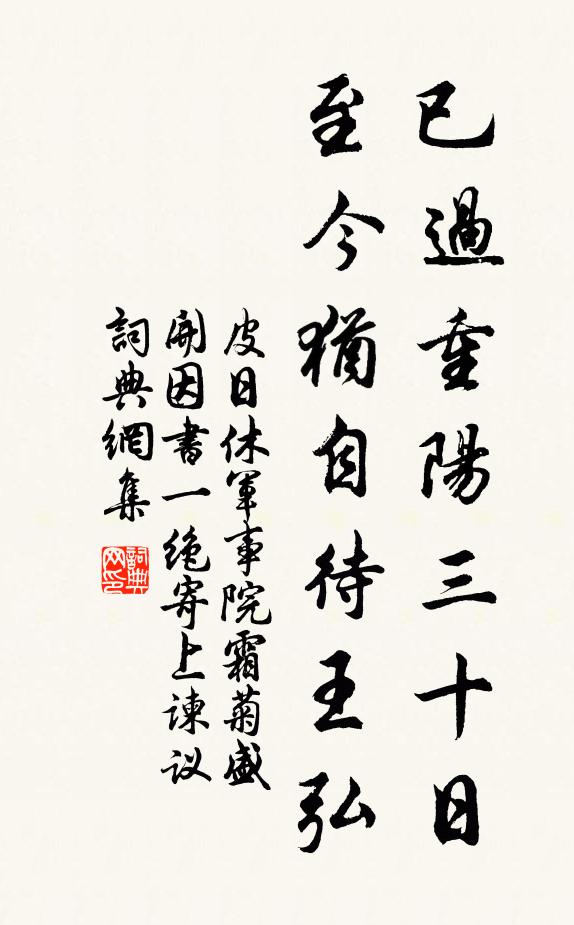 已過重陽三十日
至今猶自待王弘
皮日休軍事院霜菊盛
開因書一绝寄上諫议
詞典網集
詞典网印